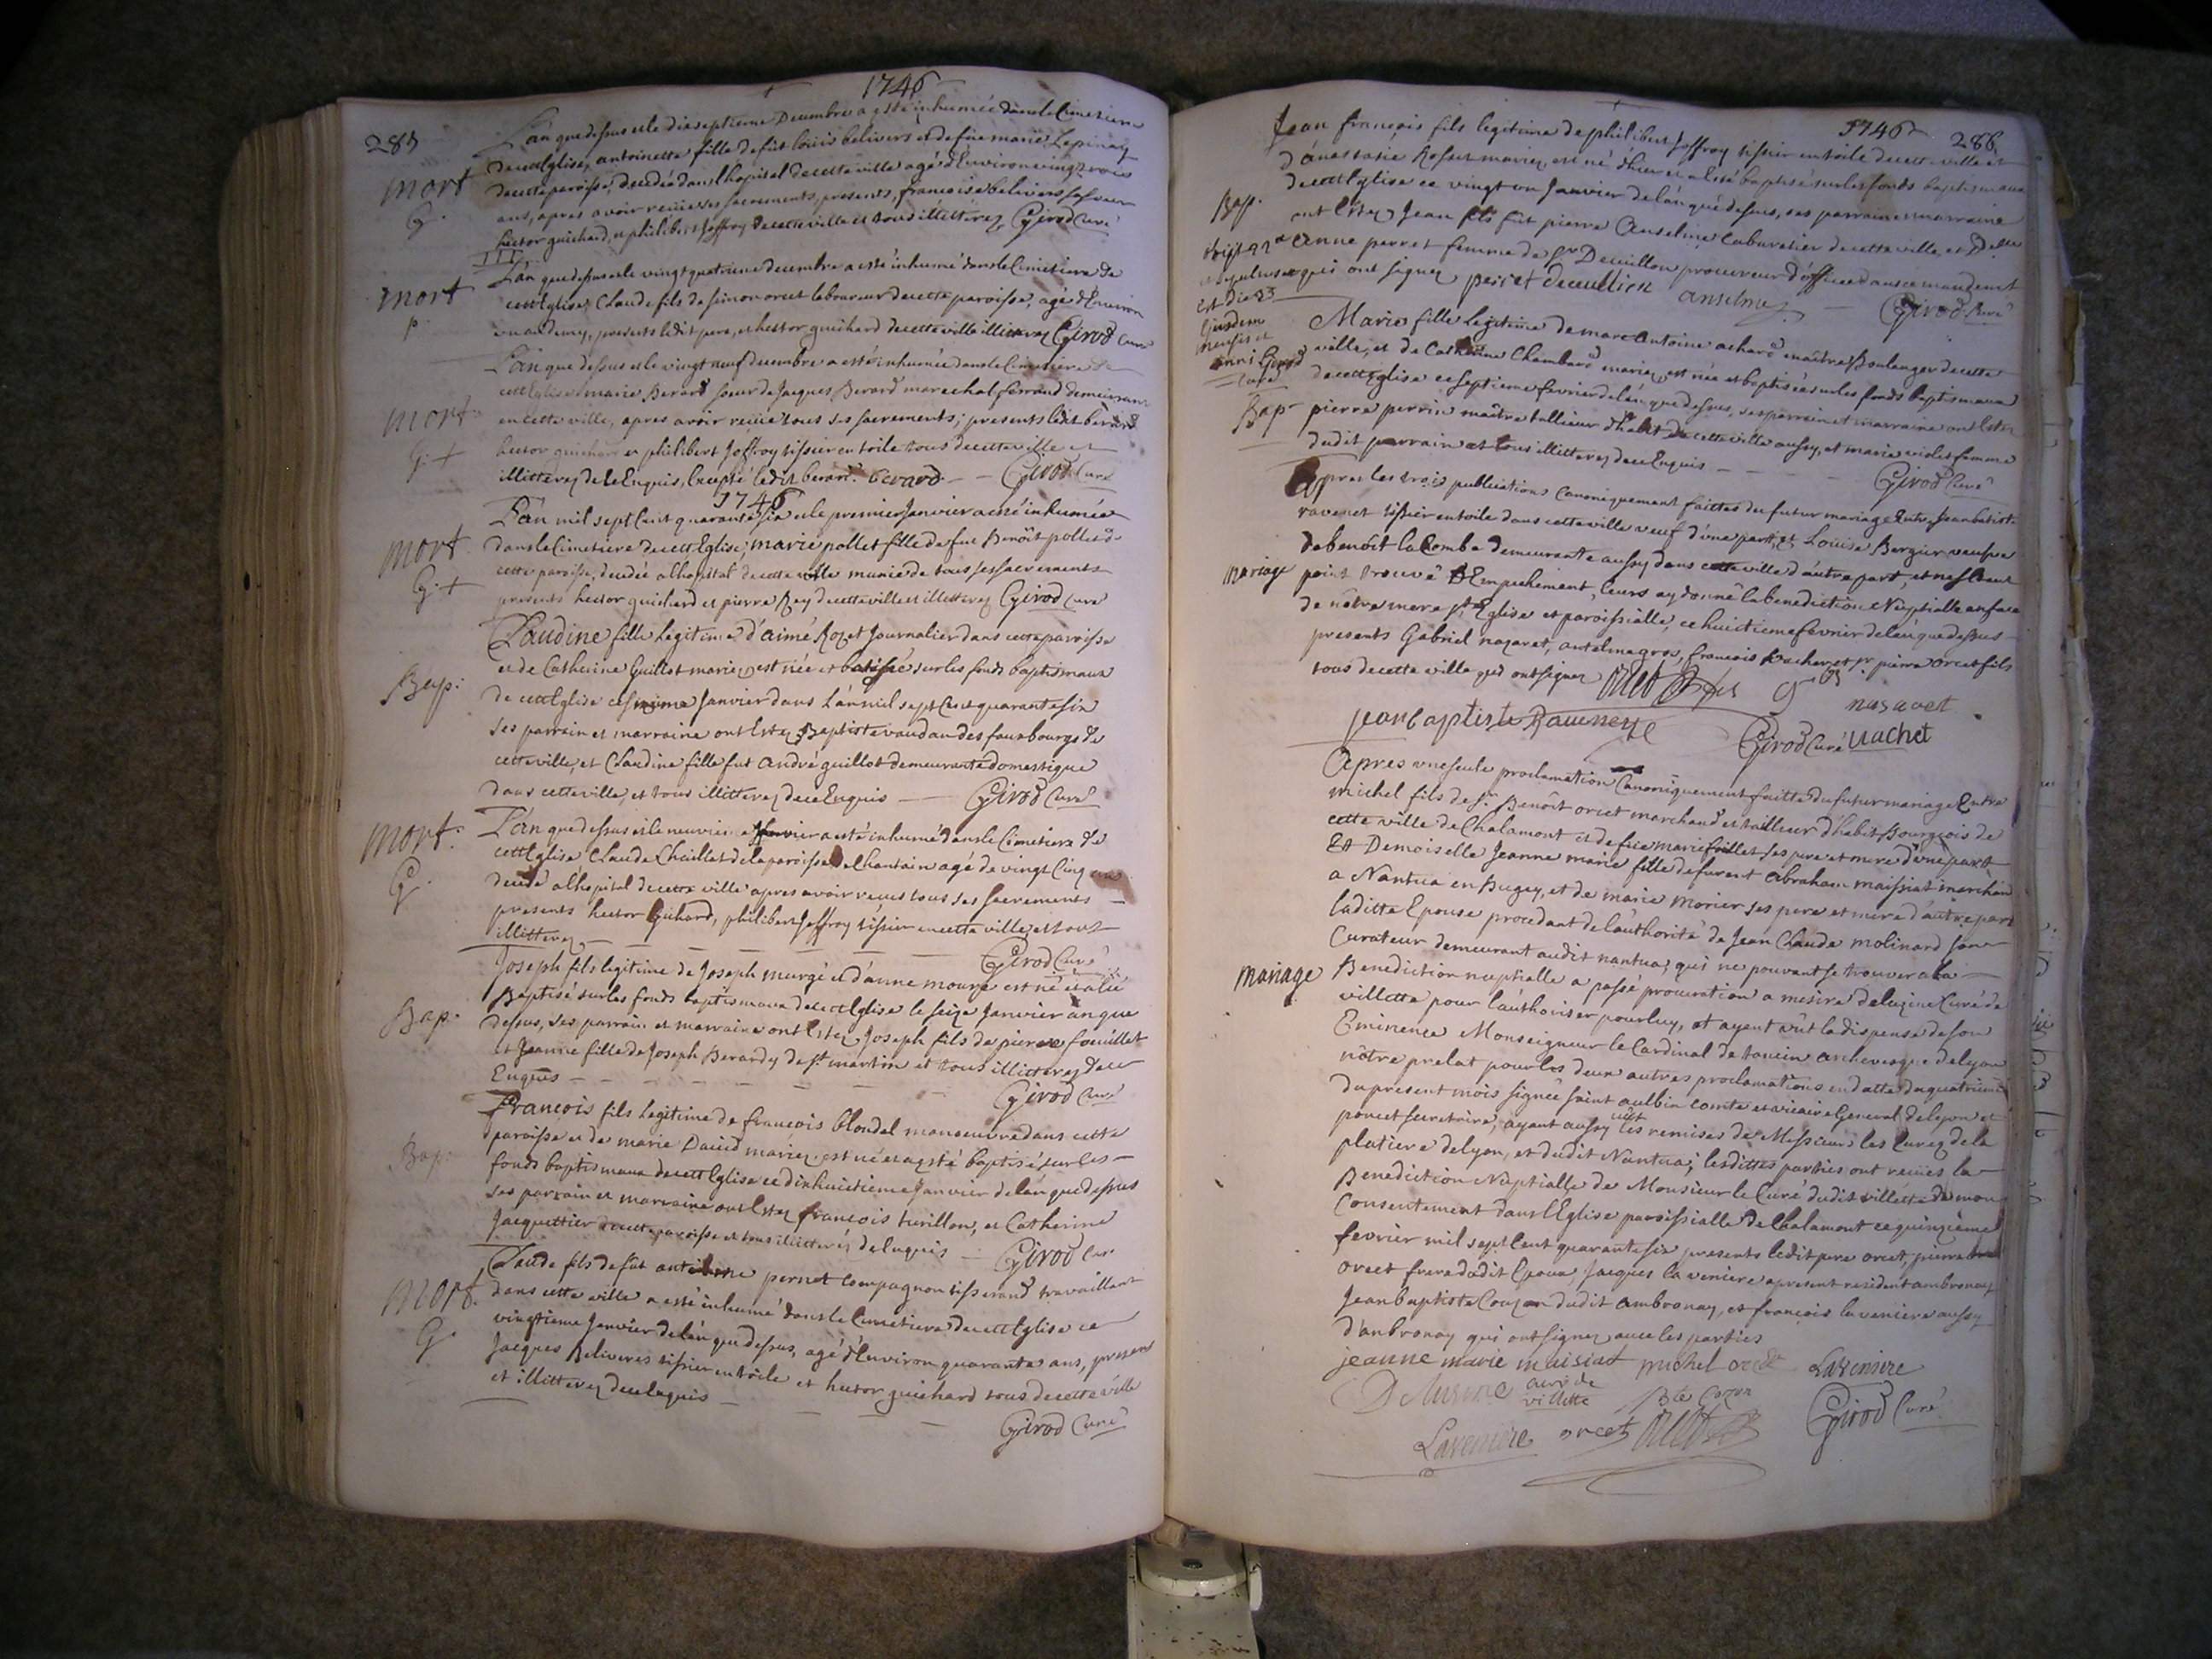 1746
285
L'an que dessus et le dixseptieme Decembre a esté inhumée dans le Cimetiere
mort
de cett Eglise, antoinette fille de fût loüis belivers et de füe marie Lepinay
de cette paroisse, decedée dans l'hopital de cette ville agé d'Environ vingt trois
G.
ans, apres avoir reçüe ses sacrements, presents, francoise belivers sa soeur
hector guichard, et philibert Joffroy de cette ville et tous illitterez Girod Curé
L'an que dessus et le vingt quatrieme decembre a esté inhumé dans le Cimetiere de
mort
cett Eglise, Claude fils de simon orcet laboureur de cette paroisse, agé d'Environ
p
un an demy, presents ledit pere, et hector guichard de cette ville illitterez Girod Curé
L'an que dessus et le vingt neuf decembre a esté inhumée dans le Cimetiere de
cett Eglise marie Berard soeur de Jacques Berard marechal ferrand demeurant
mort
en cette ville, apres avoir reçüe tous ses sacrements; presents ledit berard
G. +
hector guichard et philibert Joffroy tissier en toile tous de cette ville et
illitterez de ce Enquis, Excepté ledit berard. berard. Girod Curé
1746
L'an mil sept Cent quarante six et le premier Janvier a esté inhumée
mort
dans le Cimetiere de cett Eglise; marie pollet fille de fut Benôit pollet de
cette paroisse, decedée a l'hopital de cette ville munie de tous ses sacrements
G. +
presents hector guichard et pierre Rey de cette ville et illitterez Girod Curé
Claudine fille legitime d'aimé Rozet Journalier dans cette paroisse
et de Catherine Guillot mariez est née et batissé sur les fonds baptismaux
Bap:
de cett Eglise ce Janvier dans l'an mil sept Cent quarante six
ses parrain et marraine ont Estez Baptiste vaudan des fauxbourgs de
cette ville, et Claudine fille fut andré guillot demeurante domestique
dans cette ville, et tous illitterez de ce Enquis Girod Curé
mort.
L'an que dessus et le neuvieme Janvier a esté inhumé dans le Cimetiere de
cett Eglise Claude Chaillet de la paroisse de Chantain agé de vingt Cinq ans
G.
decedé a l'hopital de cette ville apres avoir reçus tous ses sacrements
presents hector Guihard, philibert Joffroy tissier en cette ville et tous
illitterez Girod Curé
Joseph fils legitime de Joseph murgé et d'anne moure est né et a été
Bap.
Baptisé sur les fonds baptismaux de cett Eglise le seize Janvier an que
dessus, ses parrain et marraine ont Estez Joseph fils de pierre foüillet
et Jeanne fille de Joseph Berardy de St. martin et tous illitterez de ce
Enquis Girod Curé
Francois fils legitime de francois blondel manoeuvre dans cette
paroisse et de marie David mariez. est né et a esté baptisé sur les
Bap.
fonds baptismaux de cett Eglise ce dixhuictieme Janvier de l'an que dessus
ses parrain et marraine ont Estez francois turillon, et Catherine
Jacquettier de cette paroisse et tous illitterez de Enquis Girod Cur
Claude fils de fût antoine pernet compagnon tisserand travaillant
mort.
dans cette ville a esté inhumé dans le Cimetiere de cett Eglise ce
vingtieme Janvier de l'an que dessus, agé d'Environ quarantes ans, presents
G.
Jacques Beliveres tissier en toile et hector guichard tous de cette ville
et illitterez de ce Enquis
Girod Curé
1746
286
Jean francois fils legitime de philibert Joffroy tissier en toile de cette ville et
d'anastasie Rosset mariez est né d'hier et a esté baptisé sur les fonds baptismaux
de cett Eglise ce vingt un Janvier de l'an que dessus, ses parrain et marraine
Bap.
ont Estez Jean fils fût pierre Anselme Cabaretier de cette ville, et Delle
anne perret femme de Sr Decuillon procureur d'office dans ce mandement
et sepultus
est die 23
Ejusdem
mensis et
anni Girod
Curé
qui ont signez perret decuillon anselme Girod Curé
Marie fille legitime de marc antoine achard maître Boulenger de cette
ville, et de Catherine Chambard mariez est née et baptisée sur les fonds baptismaux
de cett Eglise ce septieme fevrier de l'an que dessus, ses parrain et marraine ont Estez
Bap.
pierre perrin maître tallieur d'habit de cette ville aussy, et marie violet femme
dudit parrain et tous illitterez de ce Enquis Girod Curé
Apres les trois publications Canoniquement faittes du futur mariage Entre Jean batiste
ravenet tissier en toile dans cette ville veuf d'une part, et Louise Bergier veufve
de benôit la Combe demeurante aussy dans cette ville d'autre part, et ne s'Etant
mariage
point trouvé d'Empechement, leurs ay donné la benediction Nuptialle en face
de nôtre mere Ste Eglise et paroissialle, ce huictieme fevrier de l'an que dessus
presents Gabriel nazaret, antelme gros, francois vachet et Sr. pierre orcet fils
tous de cette ville qui ont signez orcet fils gros
nasaret
jean baptiste Ravenet Girod Curé vachet
Apres une seule proclamation Canoniquement faitte du futur mariage Entre
michel fils de Sr. Benôit orcet marchand et tailleur d'habit Bourgeois de
cette ville de Chalamont et de füe marie foillet ses pere et mere d'une part
Et Demoiselle Jeanne marie fille de furent Abraham maissiat marchand
a Nantua en Bugey, et de marie morier ses pere et mere d'autre part
laditte Epouse procedant de l'authorité de Jean Claude molinard son
Curateur demeurant audit nantua; qui ne pouvant se trouver a la
mariage
Benediction nuptialle a passé procuration a messire deluzine Curé de
villette pour l'authoriser pour luy, et ayant eut la dispense de son
Eminence Monseigneur le Cardinal de tencin archevesque de lyon
nôtre prelat pour les deux autres proclamations en datte du quatrieme
du present mois signée saint aulbin comte et vicaire General de lyon et
poncet secretaire, ayant aussy vüt les remises de Messieurs les Curez de la
platiere de lyon, et dudit Nantua; lesdittes parties ont reçües la
Benediction Nuptialle de Monsieur le Curé dudit villette de mon
Consentement dans l'Eglise paroissialle de Chalamont ce quinzieme
fevrier mil sept Cent quarante six presents ledit pere orcet, pierre
orcet frere dudit Epoux, Jacques la veniere apresent resident ambronay
Jean baptiste Couzon dudit ambronay, et francois la veniere aussy
d'anbronay qui ont signez avec les parties
jeanne marie maisiat michel orcet Laveniere
Deluzine curé de
villette Bte Cozon
Girod Curé
Laveniere orcet